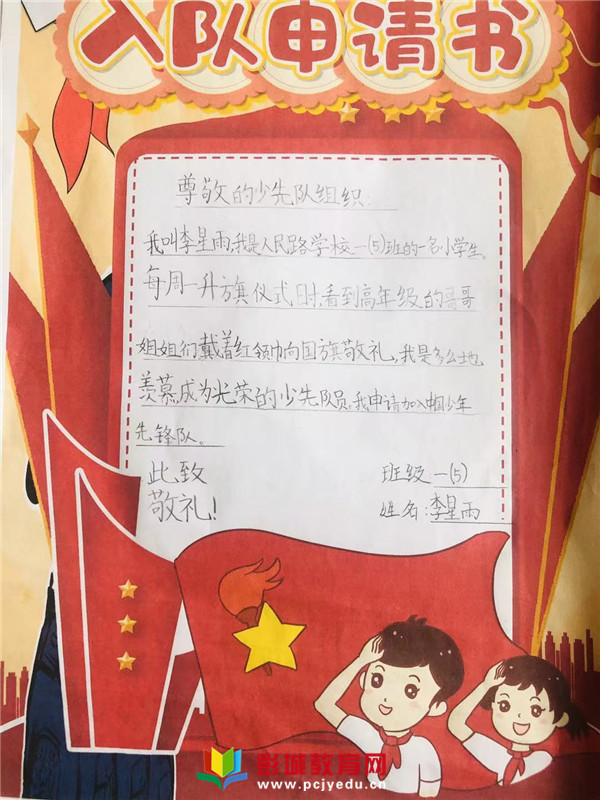 入队申请书
尊敬的少先队组织:
我叫李星雨,我是人民路学校一(5)班的一名小学生。
每周一升旗仪式时,看到高年级的哥哥
姐姐们戴着红领巾向国旗敬礼,我是多么地
羡慕,成为光荣的少先队员,我申请加入中国少年
先锋队。
此致
班级 一(5)
敬礼!
姓名:李星雨
彭城教育网
www.pcjyedu.cn